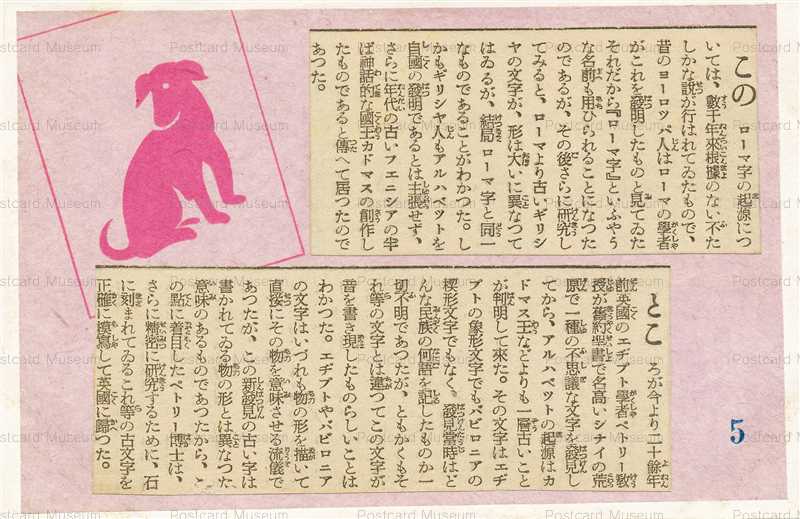 この ローマ字の起源につ
いては、數千年來根據のない不た
しかな説が行はれてゐたもので、
昔のヨーロツパ人はローマの學者
がこれを發明したものと見てゐた
それだから『ローマ字』といふやう
な名前も用ひられることになつた
のであるが、その後さらに研究し
てみると、ローマより古いギリシ
ヤの文字が、形は大いに異なつて
はゐるが、結局ローマ字と同一
なものであることがわかつた。し
かもギリシヤ人もアルハベツトを
自國の發明であるとは主張せず、
さらに年代の古いフエニシアの半
ば神話的な國王カドマスの創作し
たものであると傳へて居つたので
あつた。
ところが今より二十餘年
前英國のエヂプト學者ペトリー敎
授が舊約聖書で名高いシナイの荒
原で一種の不思議な文字を發見し
てから、アルハベツトの起源はカ
ドマス王などよりも一層古いこと
が判明して來た。その文字はエヂ
プトの象形文字でもバビロニアの
楔形文字でもなく、發見當時はど
んな民族の何語を記したものか一
切不明であつたが、ともかくもそ
れ等の文字とは違つてこの文字が
音を書き現したものらしいことは
わかつた。エヂプトやバビロニア
の文字はいづれも物の形を描いて
直接にその物を意味させる流儀で
あつたが、この新發見の古い字は
書かれてゐる物の形とは異なつた
意味のあるものであつたから、こ
の點に着目したペトリー博士は、
さらに精密に研究するために、石
に刻まれてゐるこれ等の古文字を
正確に模寫して英國に歸つた。
5
Postcard Museum